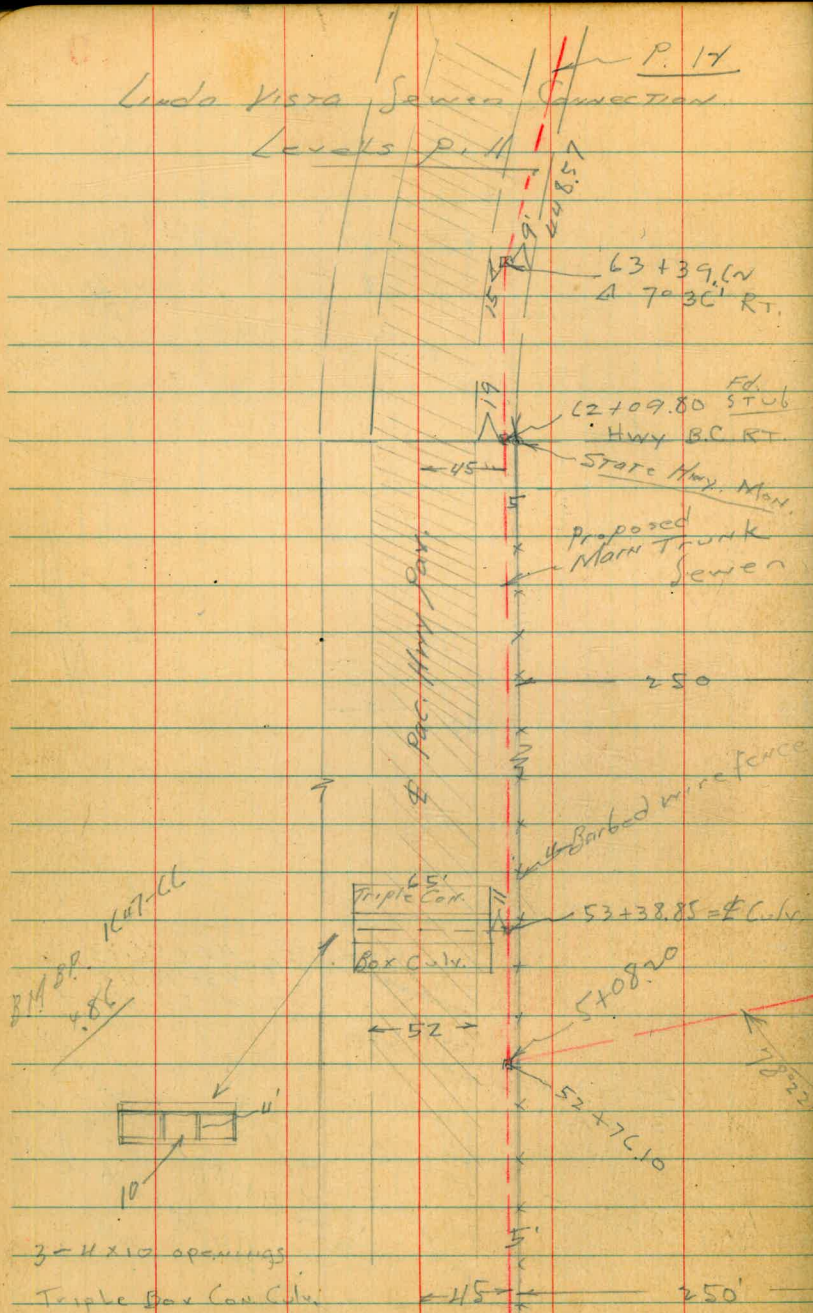 P. 12
Linda Vista Sewer Connection
Levels P. 11
448.57
9'
15
63+39.62
Δ 7°36' RT.
19
62+09.80 Fd. Stub
Hwy B.C. RT.
State Hwy. Mon.
45
5
Proposed
Main Trunk
Sewer
℄ Pac. Hwy Pav.
250
4-Barbed wire fence
65'
Triple Con.
11
53+38.85 = ℄ Culv.
Box Culv.
1647-66
BM BP.
4.86
5+08.20
52
78°22
52+76.10
4'
10
5'
3-4x10 openings
Triple Box Con. Culv.
45
250'